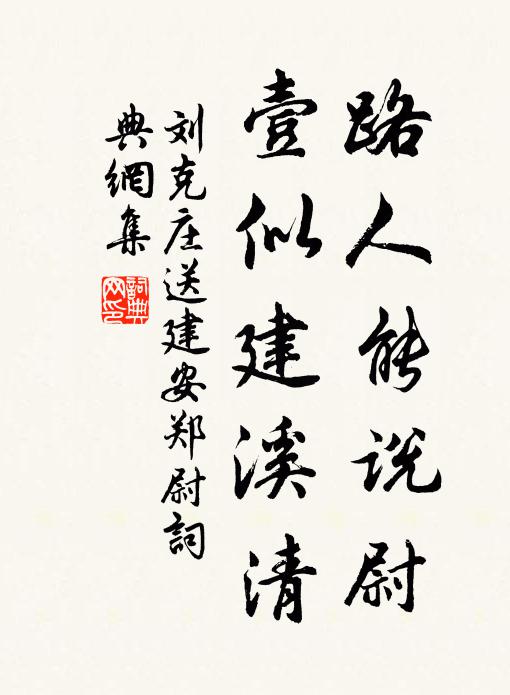 路人能说尉
壹似建溪清
刘克庄送建安郑尉詞
典網集
詞典网印